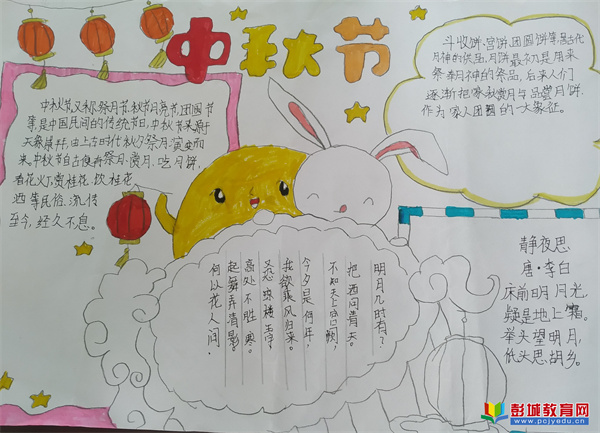 中秋节
中秋节又称祭月节、秋节月亮节、团圆节
等,是中国民间的传统节日,中秋节来源于
天象崇拜,由上古时代秋夕祭月演变而
来。中秋节自古便有祭月、赏月、吃月饼、
看花火丁赏桂花、饮桂花
酒等民俗,流传
至今,经久不息。
月神的供品。月饼最初是用来
祭奉月神的祭品,后来人们
逐渐把中秋赏月与品尝月饼,
作为家人团圆的一大象征。
明月几时有?
把酒问青天。
不知天上宫阙,
今夕是何年。
我欲乘风归来。
又恐琼楼玉宇,
高处不胜寒。
起舞弄清影。
何以花人间.
静夜思
唐·李白
床前明月光,
疑是地上霜。
举头望明月,
低头思胡乡。
彭城教育网
www.pcjyedu.cn